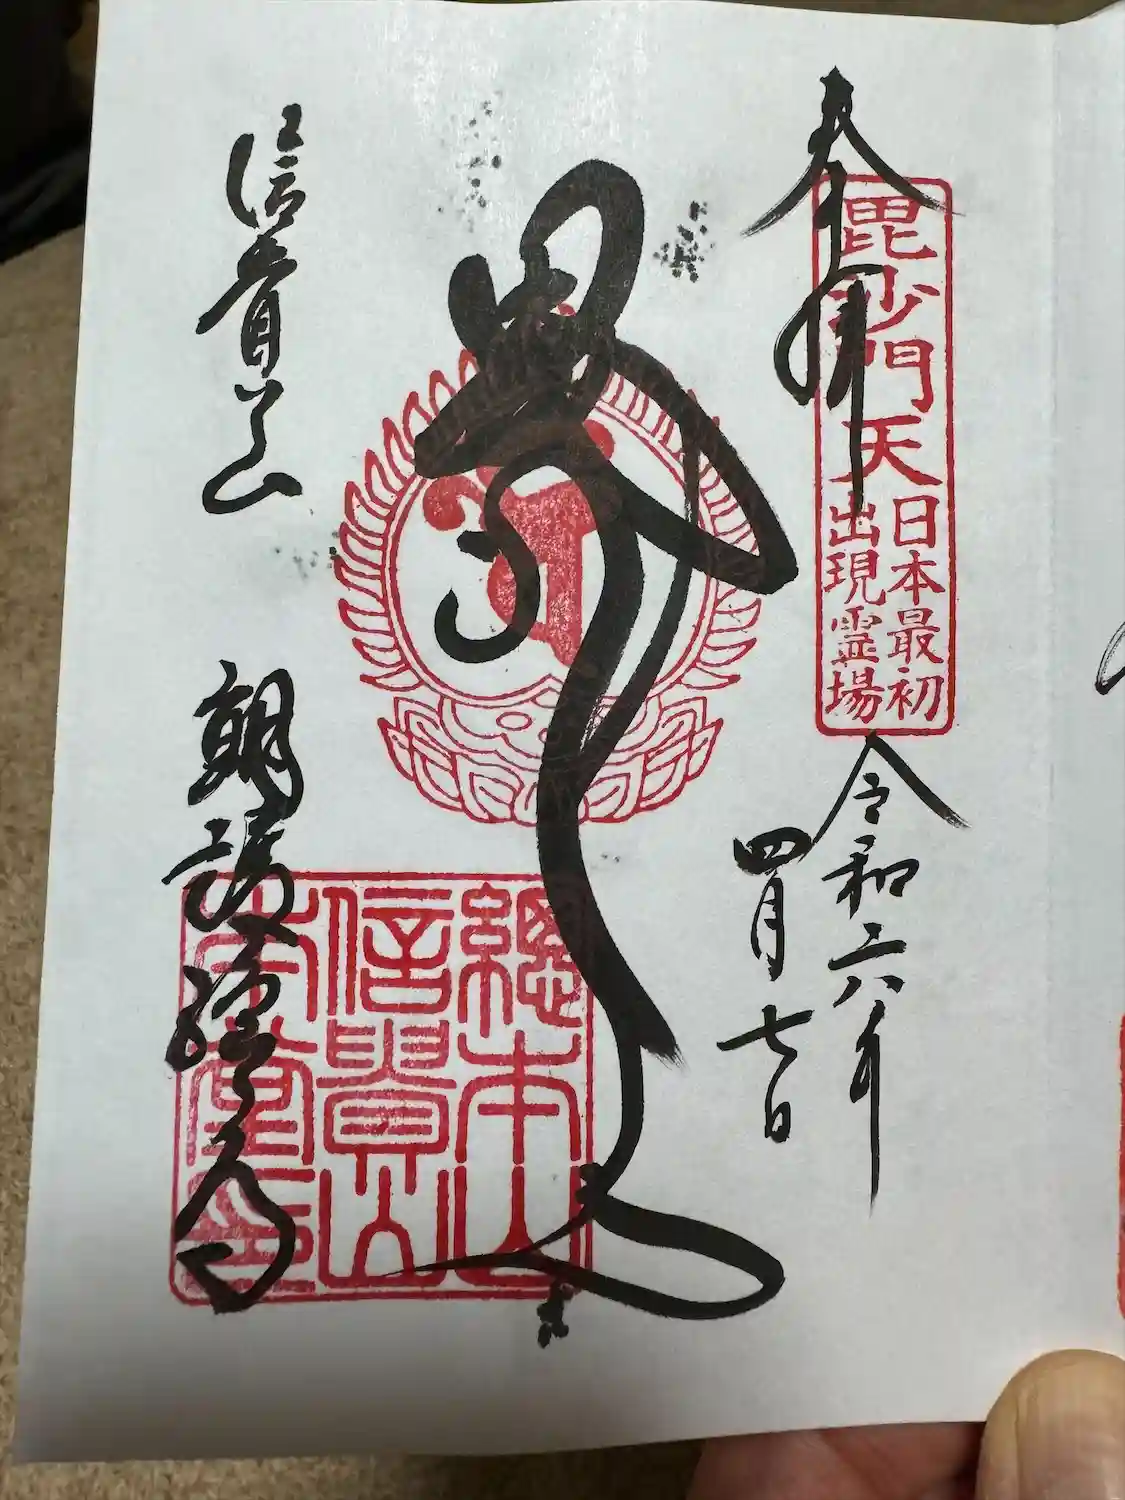 奉拝
毘沙門天
日本最初
出現霊場
令和六年
四月七日
總本山
信貴山
本堂印
信貴山
朝護孫子寺